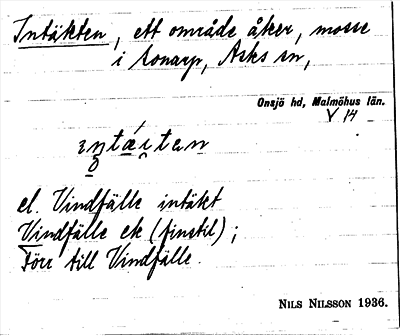 Intäkten, ett område åker, mosse
i Konarp, Asks sn,
Onsjö hd, Malmöhus län.
V 14
el. Vindfälle intäkt
Vindfälle ek (finstil);
Förr till Vindfälle.
NILS NILSSON 1936.